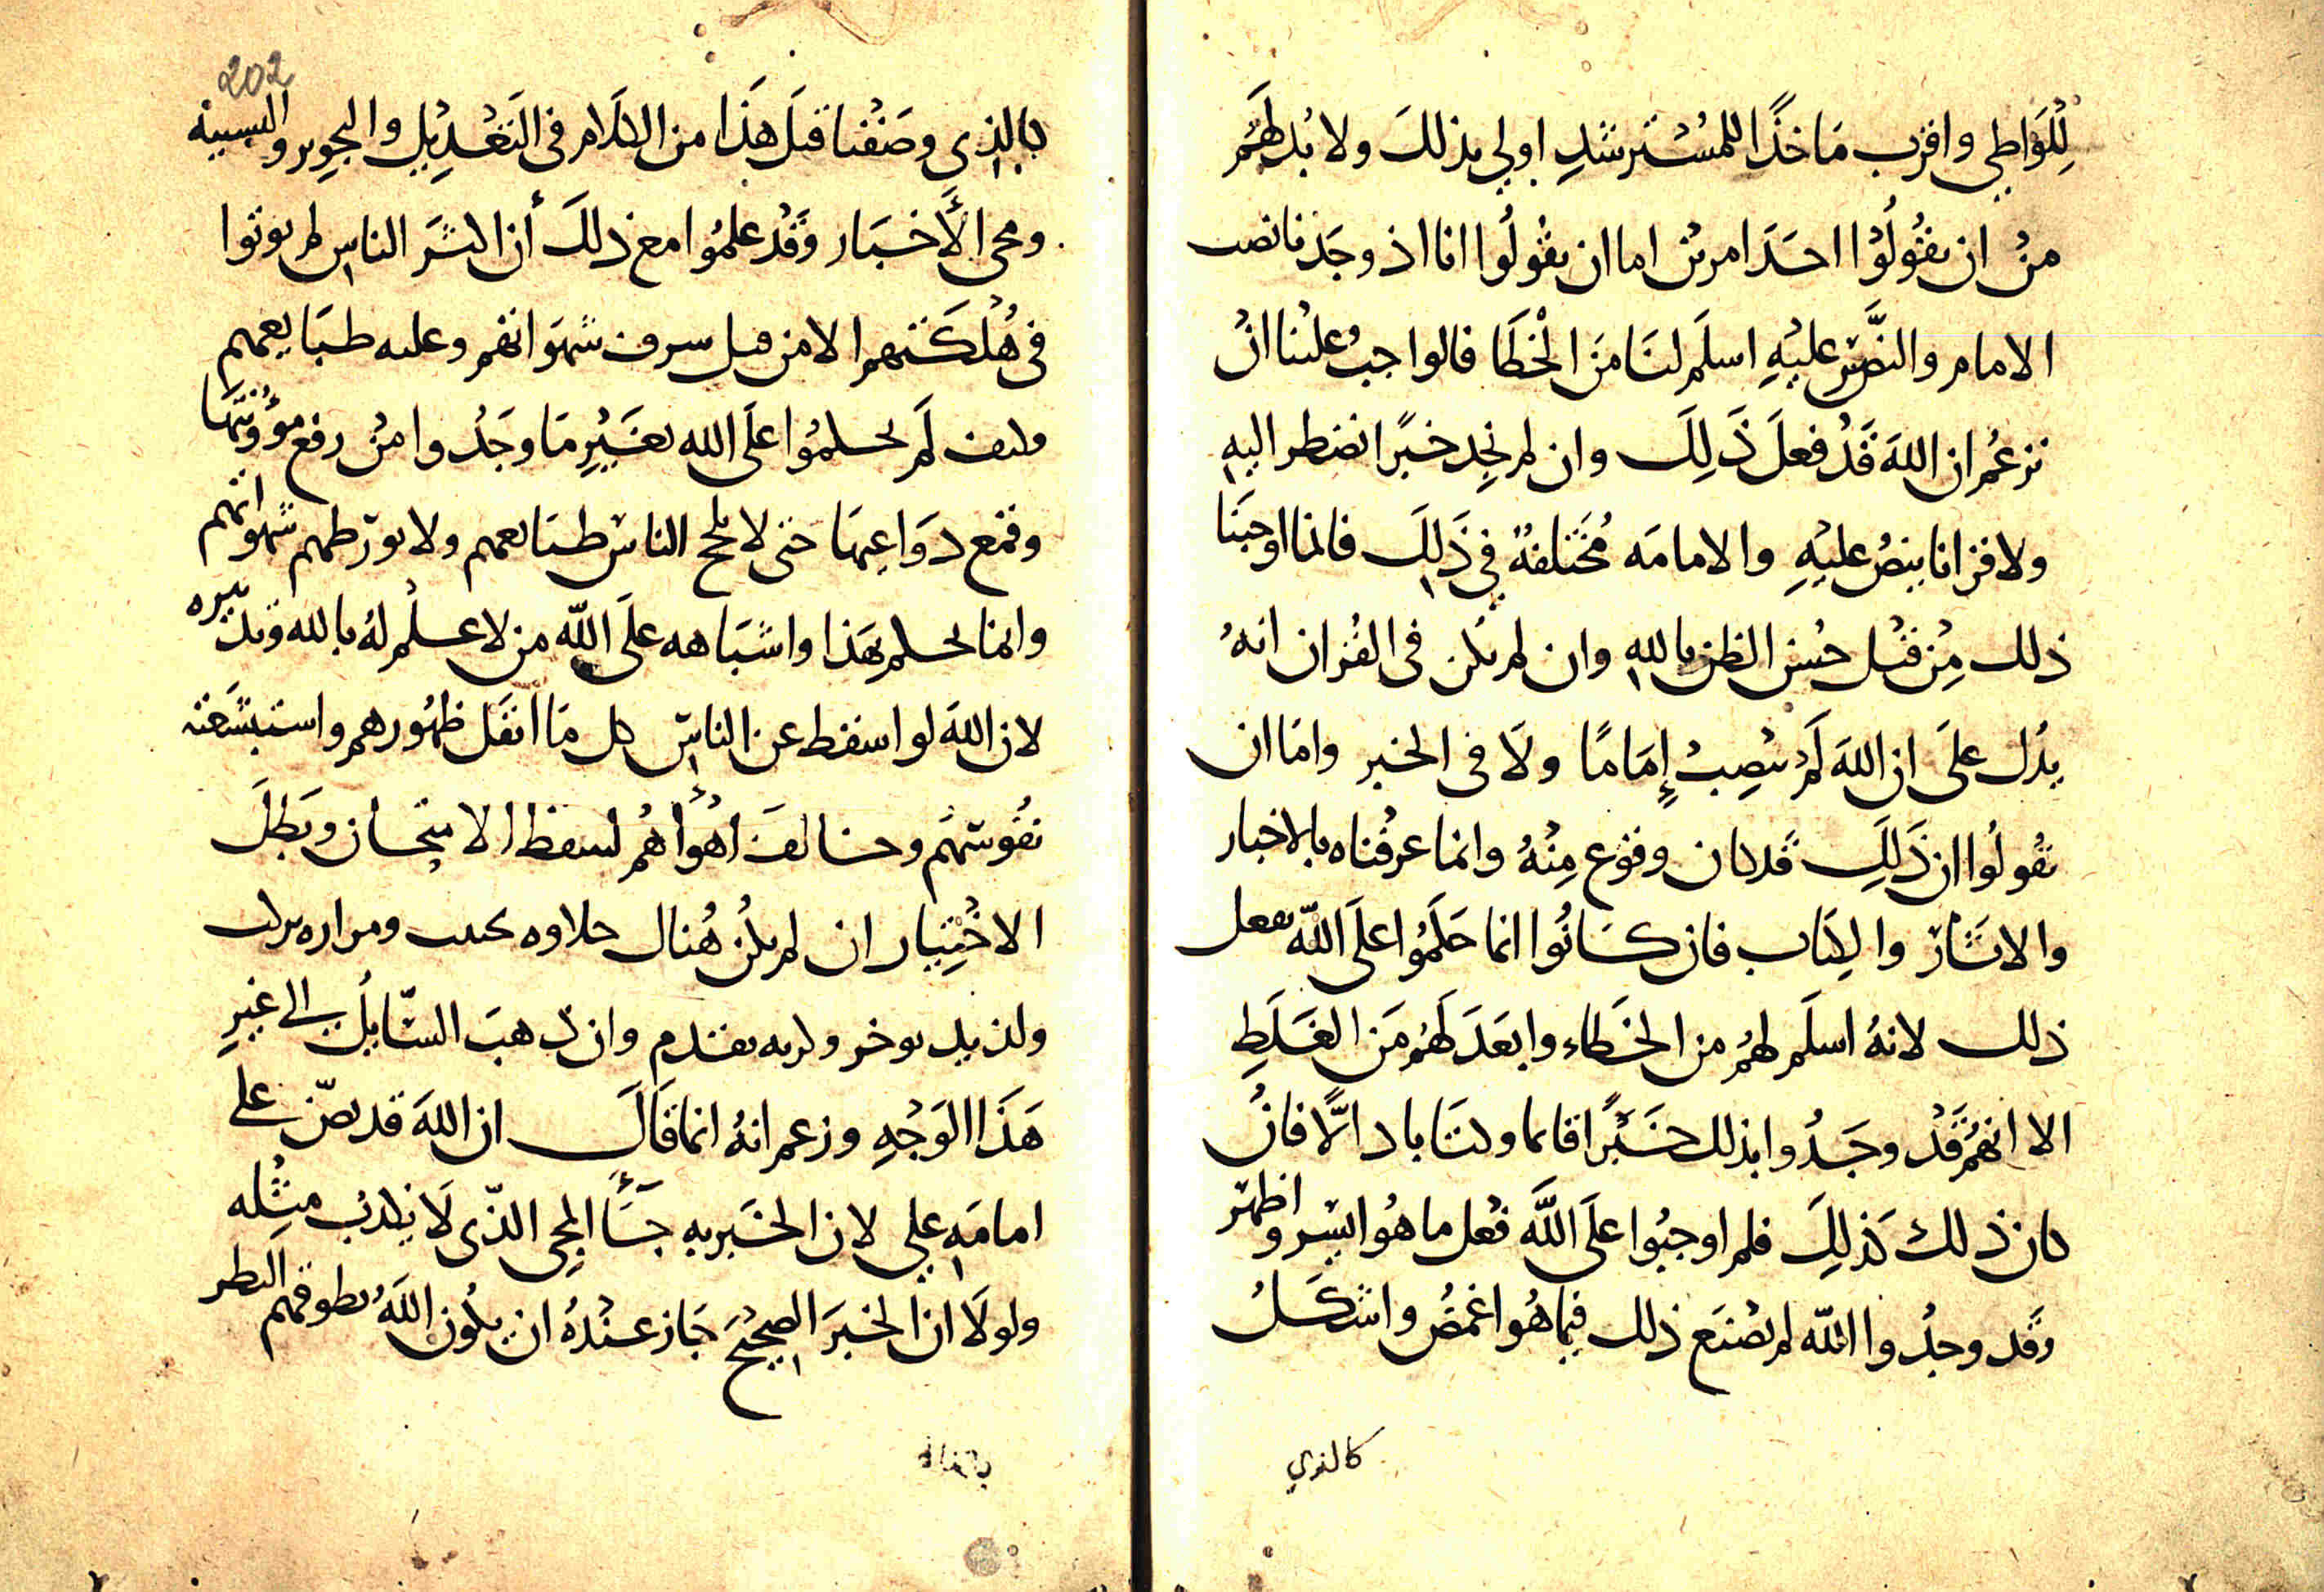 للواطي واقرب ماخذا للمسترشد اولي بذلك ولا بد لهم
من ان يقولوا احد امرين اما ان يقولوا انا اذ وجدنا نصب
الامام والنص عليه اسلم لنا من الخطا فالواجب علينا ان
نزعم ان الله قد فعل ذلك وان لم نجد خبرا نضطر اليه
ولا قرانا ينص عليه والامامه مختلفة في ذلك فانما اوجبنا
ذلك من قبل حسن الظن بالله وان لم يكن في القران انه
يدل على ان الله لم ينصب إماما ولا في الخبر واما ان
يقولوا ان ذلك قد كان وقوع منه وانما عرفناه بالاخبار
والاثار والكتاب فان كانوا انما حكموا على الله بفعل
ذلك لانه اسلم لهم من الخطاء وابعد لهم من الغلط
الا انهم قد وجدوا بذلك خبرا قائما وكتابا دالا فان
كان ذلك كذلك فلم اوجبوا على الله فعل ما هو ايسر واظهر
وقد وجدوا الله لم يصنع ذلك فيما هو اغمض واشكل
كالذي
202
بالذي وصفنا قبل هذا من الكلام في التعديل والتجوير والتشبيه
ومجي الأخبار وقد علموا مع ذلك أن اكثر الناس لم يوتوا
في هلكتهم الا من قبل سرف شهواتهم وغلبه طبايعهم
فكيف لم يحكموا على الله بغير ما وجدوا من رفع مؤونتها
وقمع دواعيها حتى لا تلج الناس طبايعهم ولا تورطهم شهواتهم
وانما يحكم بهذا واشباهه على الله من لا علم له بالله وتدبيره
لان الله لو اسقط عن الناس كل ما اثقل ظهورهم واستبشعته
نفوسهم وخالف أهواهم لسقط الامتحان وبطل
الاختيار ان لم يكن هناك حلاوه تجتنب ومراره تركب
ولذيذ يوخر وكريه يقدم وان ذهب السايل الى غير
هذا الوجه وزعم انه انما قال ان الله قد نص على
امامه علي لان الخبر به جاء المجي الذي لا يكذب مثله
ولولا ان الخبر الصحيح جاز عنده ان يكون الله يطوقهم النظر